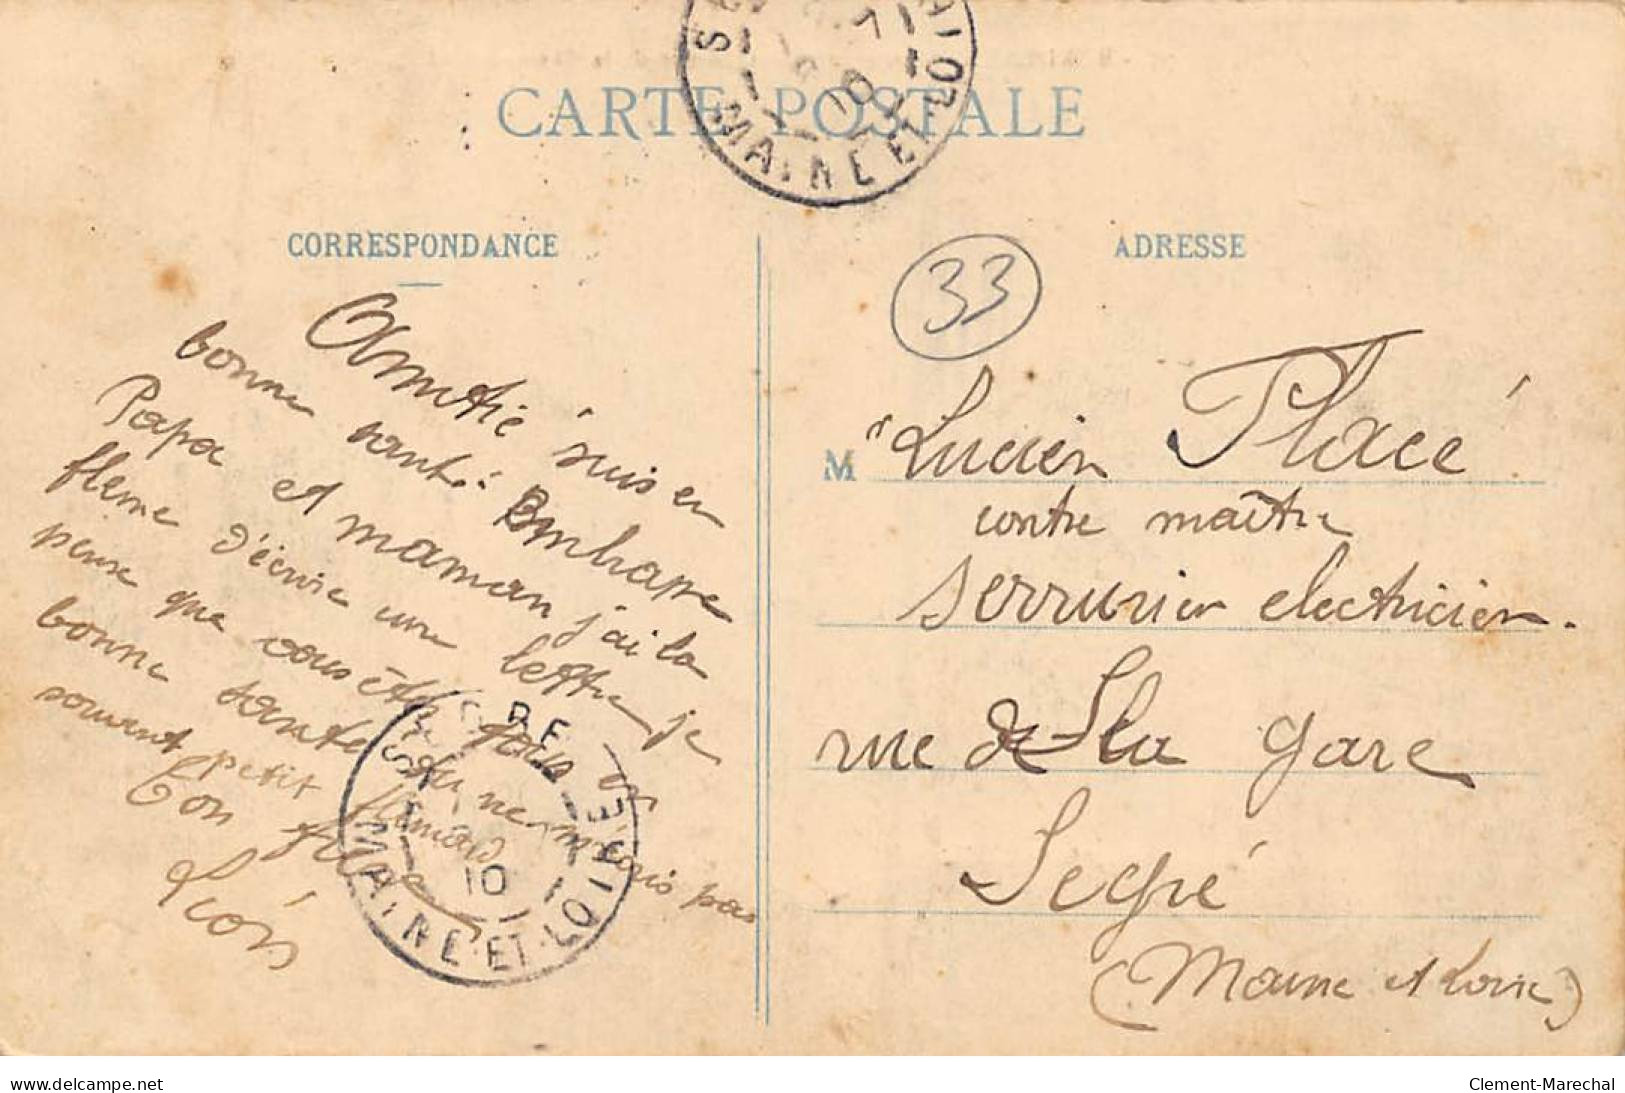 CARTE POSTALE
MAINE-ET-LOIRE
CORRESPONDANCE
ADRESSE
33
Amitié suis en
bonne santé. Embrasse
Papa et maman j'ai la
flemme d'écrire une lettre je
pense que vous êtes tous en
bonne santé tu ne m'écris pas
souvent petit flemard
Ton frère
M Lucien Placé
contre maître
serrurier electricien.
rue de la gare
Segré
(Maine et Loire)
SEGRÉ
10
MAINE-ET-LOIRE
delcampe.net
Clement-Marechal